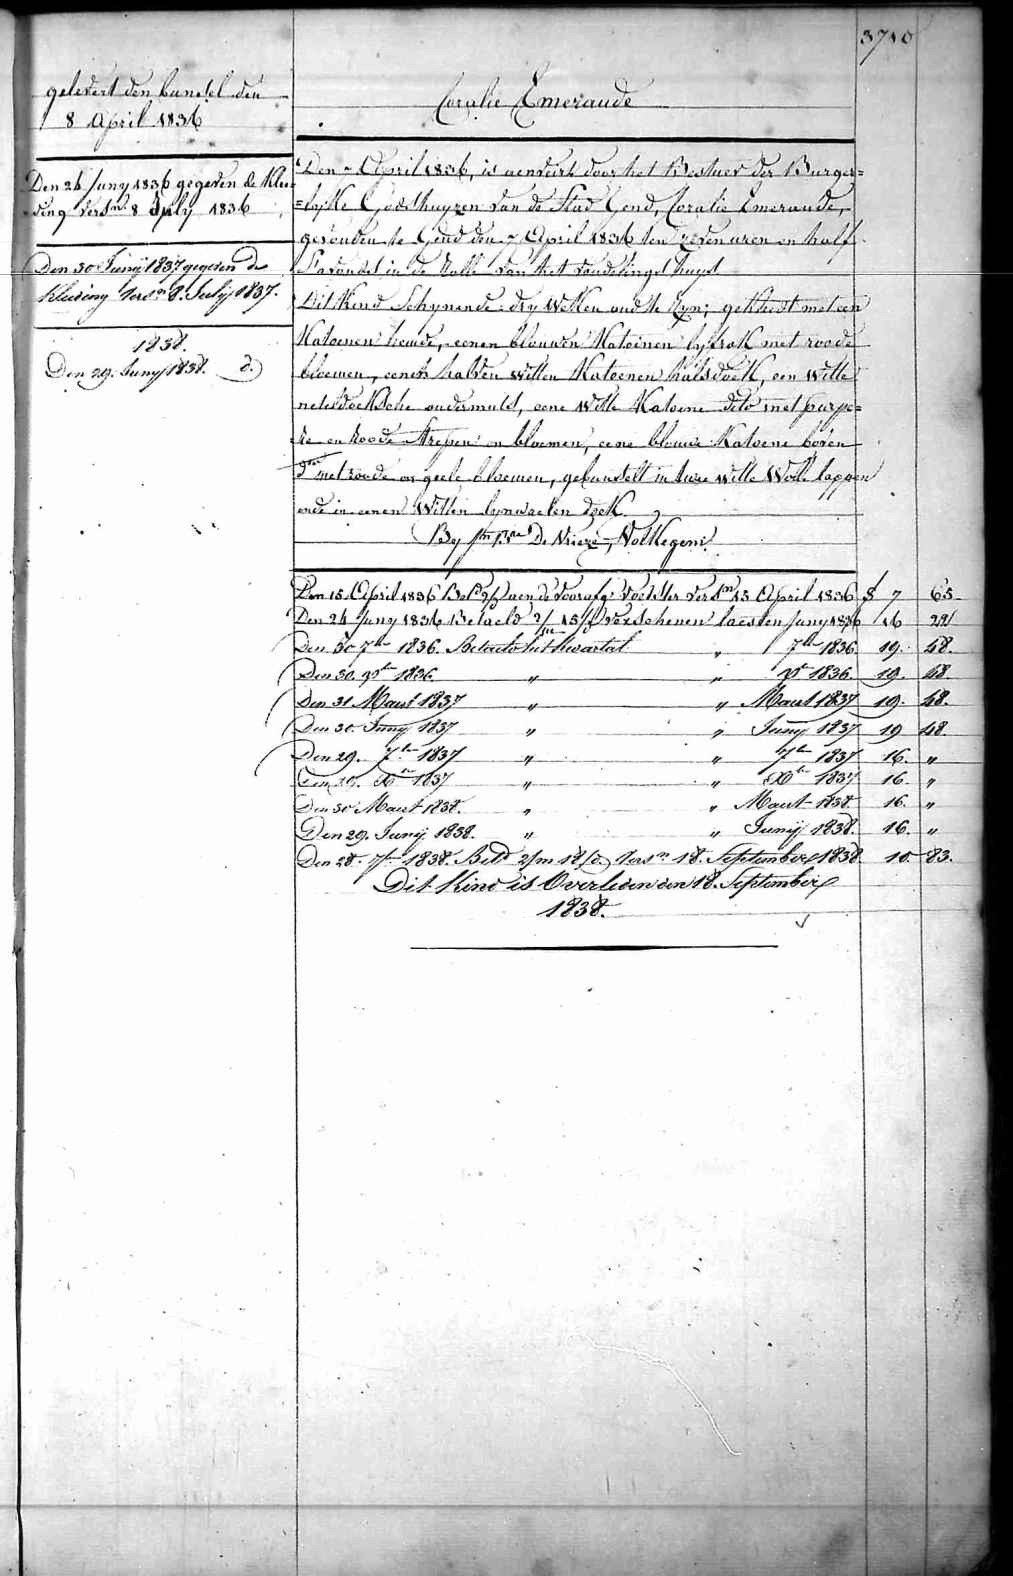 3710
gelevert den bundel den
8 April 1836
Den 24 Juny 1836 gegeven de Klee-
ding versn. 8 July 1836
Den 30 Junij 1837 gegeven de
Kleeding versn. 8. July 1837.
1838.
Den 29. Juny 1838. d.
Coralie Emeraude
Den 7 April 1836, is aenveird door het Bestuer der Burger=
=lyke Godshuyzen van de Stad Gend, Coralie Emeraude,
gevonden te Gend den 7 April 1836 ten zeven uren en half
s'avonds in de rolle van het vondelingshuys
Dit Kind Schynende dry Weken oud te Zyn; gekleed met een
Katoenen hemde, eenen blauwen Katoinen lyfrok met roode
bloemen, eenen halven witten Katoenen halsdoek, een Witte
neteldoeksche ondermuts, eene Witte Katoene dito met purpe=
re en roode strepen en bloemen, eene blauwe Katoene boven
dto met roode en geele bloemen, gebundelt in twee witte Wolle lappen
ende in eenen Witten lynwaeten doek.
By De Vrieze, Volkegem.
Den 15 April 1836 aen de voorafge voedster versn 13 April 1836 f 7 65
Den 24 Juny 1836 Betaeld verschenen laesten Juny 1836 16 29
Den 30 7br 1836. Betaeld het kwartal " 7br 1836 19. 48.
Den 30. Xbr 1836 " " Xbr 1836 19. 48
Den 31 Maert 1837 " " Maert 1837 19. 48.
Den 30. Juny 1837 " " Juny 1837 19 48
Den 29. 7br 1837 " " 7br 1837 16. "
Den 29. Xbr 1837 " " Xbr 1837 16. "
Den 30 Maert 1838. " " Maert 1838 16. "
Den 29. Junij 1838. " " Junij 1838. 16. "
Den 28. 7br 1838. Betd 2/m 18/d versn 18. September 1838 10 83.
Dit Kind is Overleden den 18. September
1838.